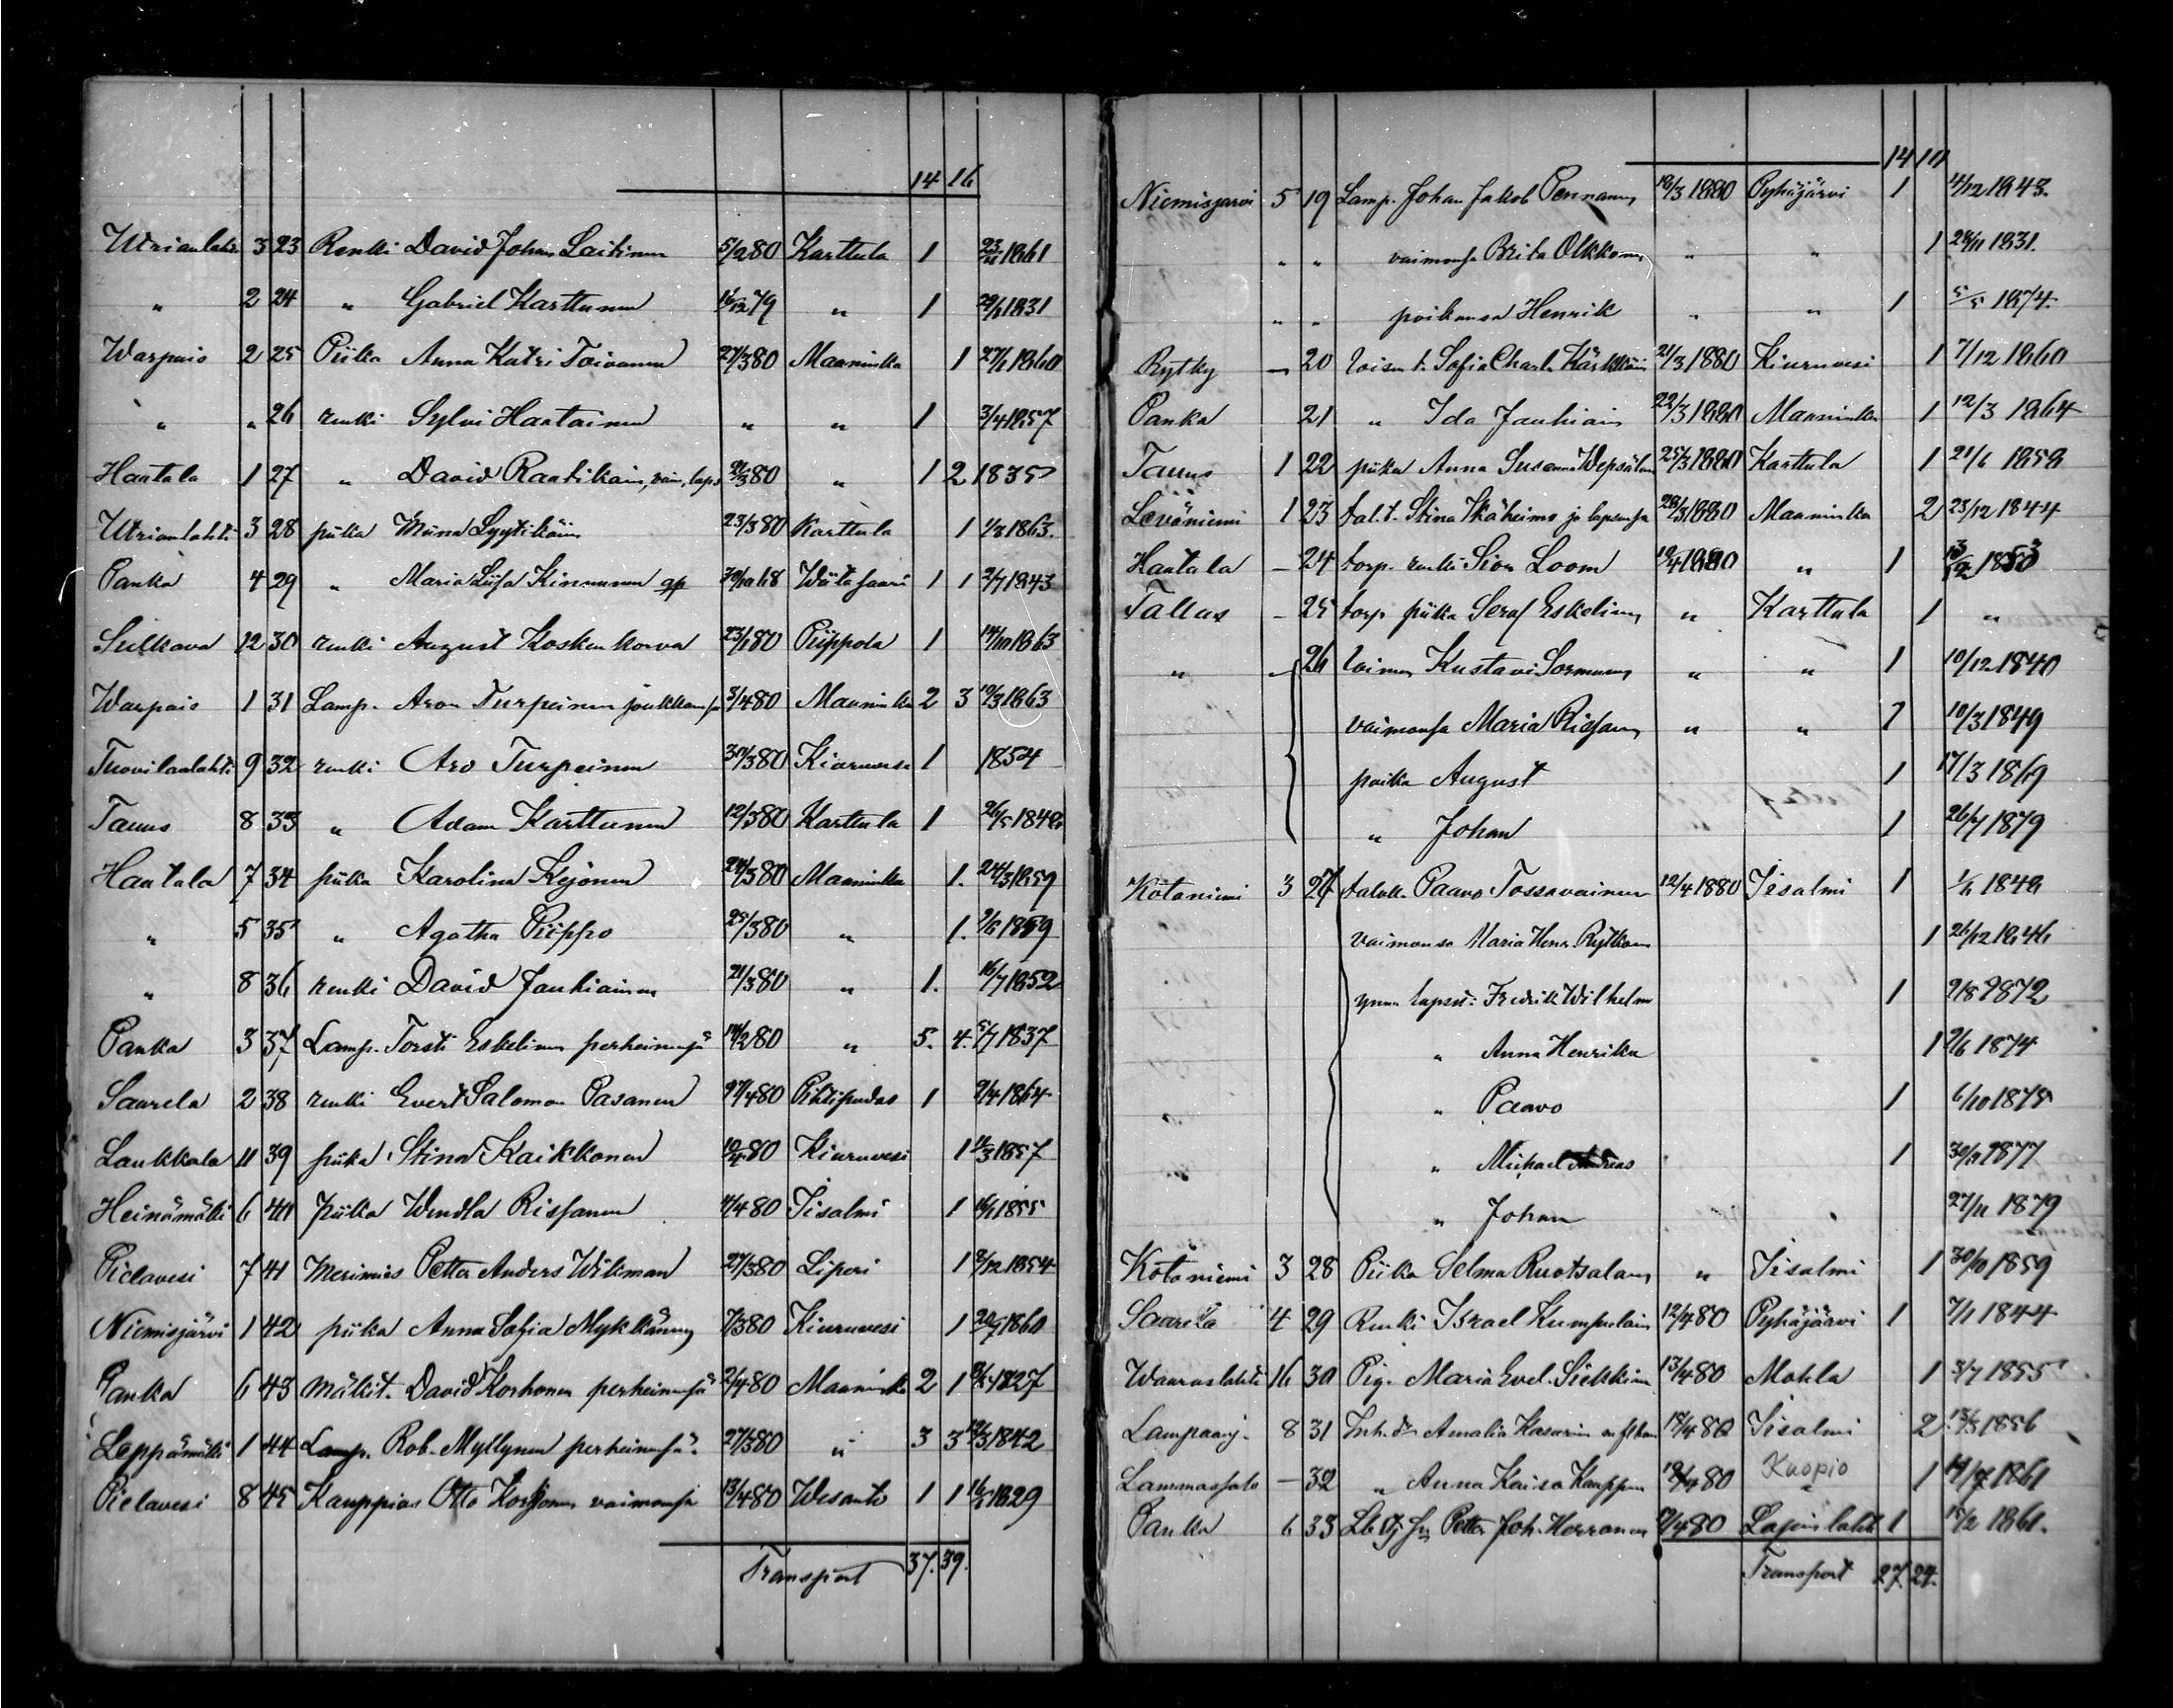 14 16
Utrianlahti 3 23 Renki David Johan Laitinen 5/2 80 Karttula 1 23/11 1861
" 2 24 " Gabriel Karttunen 16/12 79 " 1 29/1 1831
Warpais 2 25 Piika Anna Katri Toivanen 27/3 80 Maaninka 1 27/1 1860
" " 26 renki Sylvi Haatainen " " 1 3/4 1857
Haatala 1 27 " David Raatikain, vaim, laps 21/3 80 " 1 2 1835
Utrianlahti 3 28 piika Miina Lyytikäin 23/3 80 Karttula 1 1/8 1863.
Panka 4 29 " Maria Liisa Kinnunen 1 1 2/7 1843
Sulkava 12 30 renki August Koskenkorva 23/1 80 Piippola 1 14/10 1863
Warpais 1 31 Lamp. Aron Turpeinen joukkonsa 3/4 80 Maaninka 2 3 1863
Tuovilanlahti 9 32 renki Aro Turpeinen 31/3 80 Kiuruvesi 1 1854
Tauus 8 33 " Adam Karttunen 12/3 80 Karttula 1 26/5
Haatala 7 34 piika Karolina Kejonen 24/3 80 Maaninka 1. 24/3 1859
" 5 35 " Agatha Piippo 25/3 80 " 1. 1859
" 8 36 renki David Jauhiainen 21/3 80 " 1. 16/7 1852
Panka 3 37 Lamp. Torsti Eskelinen perheinensä 14/2 80 " 5. 4. 5/7 1837
Saarela 2 38 renki Evert Salomon Pasanen 27/4 80 Pihtipudas 1 9/4 1864
Laukkala 11 39 piika Stina Kaikkonen 10/4 80 Kiuruvesi 1 11/3 1857
Heinämäki 6 40 Piika Wendla Rissanen 4/4 80 Iisalmi 1 16/1 1855
Pielavesi 7 41 Merimies Petter Anders Wikman 27/3 80 Liperi 1 8/12 1854
Niemisjärvi 1 42 piika Anna Sofia Mykkänen 7/3 80 Kiuruvesi 1 20/7 1860
Panka 6 43 mäkit. David Korhonen perheinensä 2/4 80 Maaninka 2 1 1827
Leppämäki 1 44 Lamp. Rob. Myllynen perheinensä 27/3 80 " 3 3 1842
Pielavesi 8 45 Kauppias Otto Korhonen vaimonsa 13/4 80 Wesanto 1 1 1829
Transport 37. 39.
14 10
Niemisjarvi 5 19 Lamp. Johan Jakob Pennanen 18/3 1880 Pyhäjärvi 1 4/12 1843.
" " vaimonsa Brita Olkkonen " " 1 24/11 1831.
" " poikansa Henrik " " 1 5/5 1874.
Rytky — 20 loisen t. Sofia Charl. Kärkkäin 21/3 1880 Kiuruvesi 1 7/12 1860
Panka 21 " Ida Jauhiain 22/3 1880 Maaninka 1 12/3 1864
Tauus 1 22 piika Anna Susanna Wepsäläin 25/3 1880 Karttula 1 21/6 1858
Leväniemi 1 23 tal.t. Stina Ikäheimo ja lapsensa 28/3 1880 Maaninka 2 23/12 1844
Haatala – 24 torp. renki Sion Loom 10/4 1880 " 1
Tallus – 25 torp. piika Seraf Eskelinen " Karttula 1 "
" – 26 loinen Kustavi Sormunen " " 1 10/12 1840
vaimonsa Maria Rissanen " " 1 10/3 1849
poika August 1 17/3 1869
" Johan 1 26/7 1879
Kotaniemi 3 27 taloll. Paavo Tossavainen 12/4 1880 Iisalmi 1
vaimonsa Maria Henr. Rytkönen 1 26/12 1846
ynnä lapset: Fredrik Wilhelm 1 9/8 1872
" Anna Henrika 1 2/6 1874
" Paavo 1 6/10 1875
" Michael 1 1877
" Johan 27/11 1879
Kotaniemi 3 28 Piika Selma Ruotsalain " Iisalmi 1 30/10 1859
Saarela 4 29 Renki Israel Kumpulain 12/4 80 Pyhäjärvi 1 7/1 1844
Wauraslahti 16 30 Pig. Maria Evel. Siekkinen 13/4 80 Mohla 1 3/7 1855
Lampaanj. 8 31 Inh. dr Amalia Kasurin 18/4 80 Iisalmi 2 1856
Lammassalo — 32 " Anna Kaisa Kauppin 19/4 80 Kuopio 1 1861
Panka 6 33 Petter Joh. Herranen 9/4 80 Lapinlahti 1 15/2 1861.
Transport 27. 24.